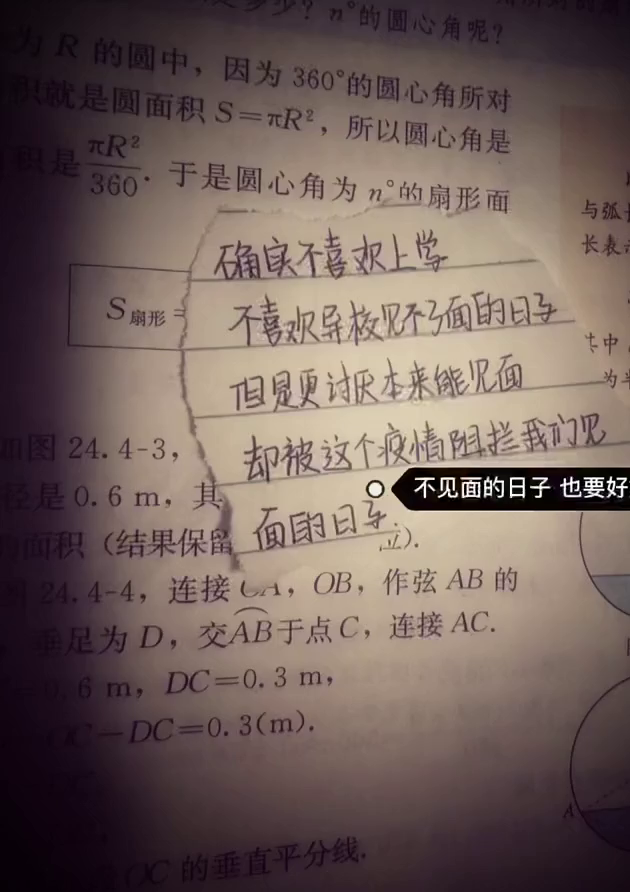 n°的圆心角呢?
为 R 的圆中，因为 360°的圆心角所对
积就是圆面积 S=πR²，所以圆心角是
积是πR²/360. 于是圆心角为 n°的扇形面
与弧长
长表示
确实不喜欢上学
S扇形=
不喜欢导校见不了面的日子
其中
为半
但是更讨厌本来能见面
如图 24.4-3，
却被这个疫情阻拦我们见
径是 0.6 m，其
不见面的日子 也要好
面的日子
的面积（结果保留
位).
图 24.4-4，连接 OA，OB，作弦 AB 的
垂足为 D，交AB于点 C，连接 AC.
=0.6 m，DC=0.3 m，
OC－DC=0.3(m).
A
OC 的垂直平分线.